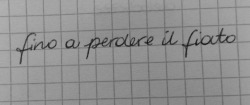 fino a perdere il fiato